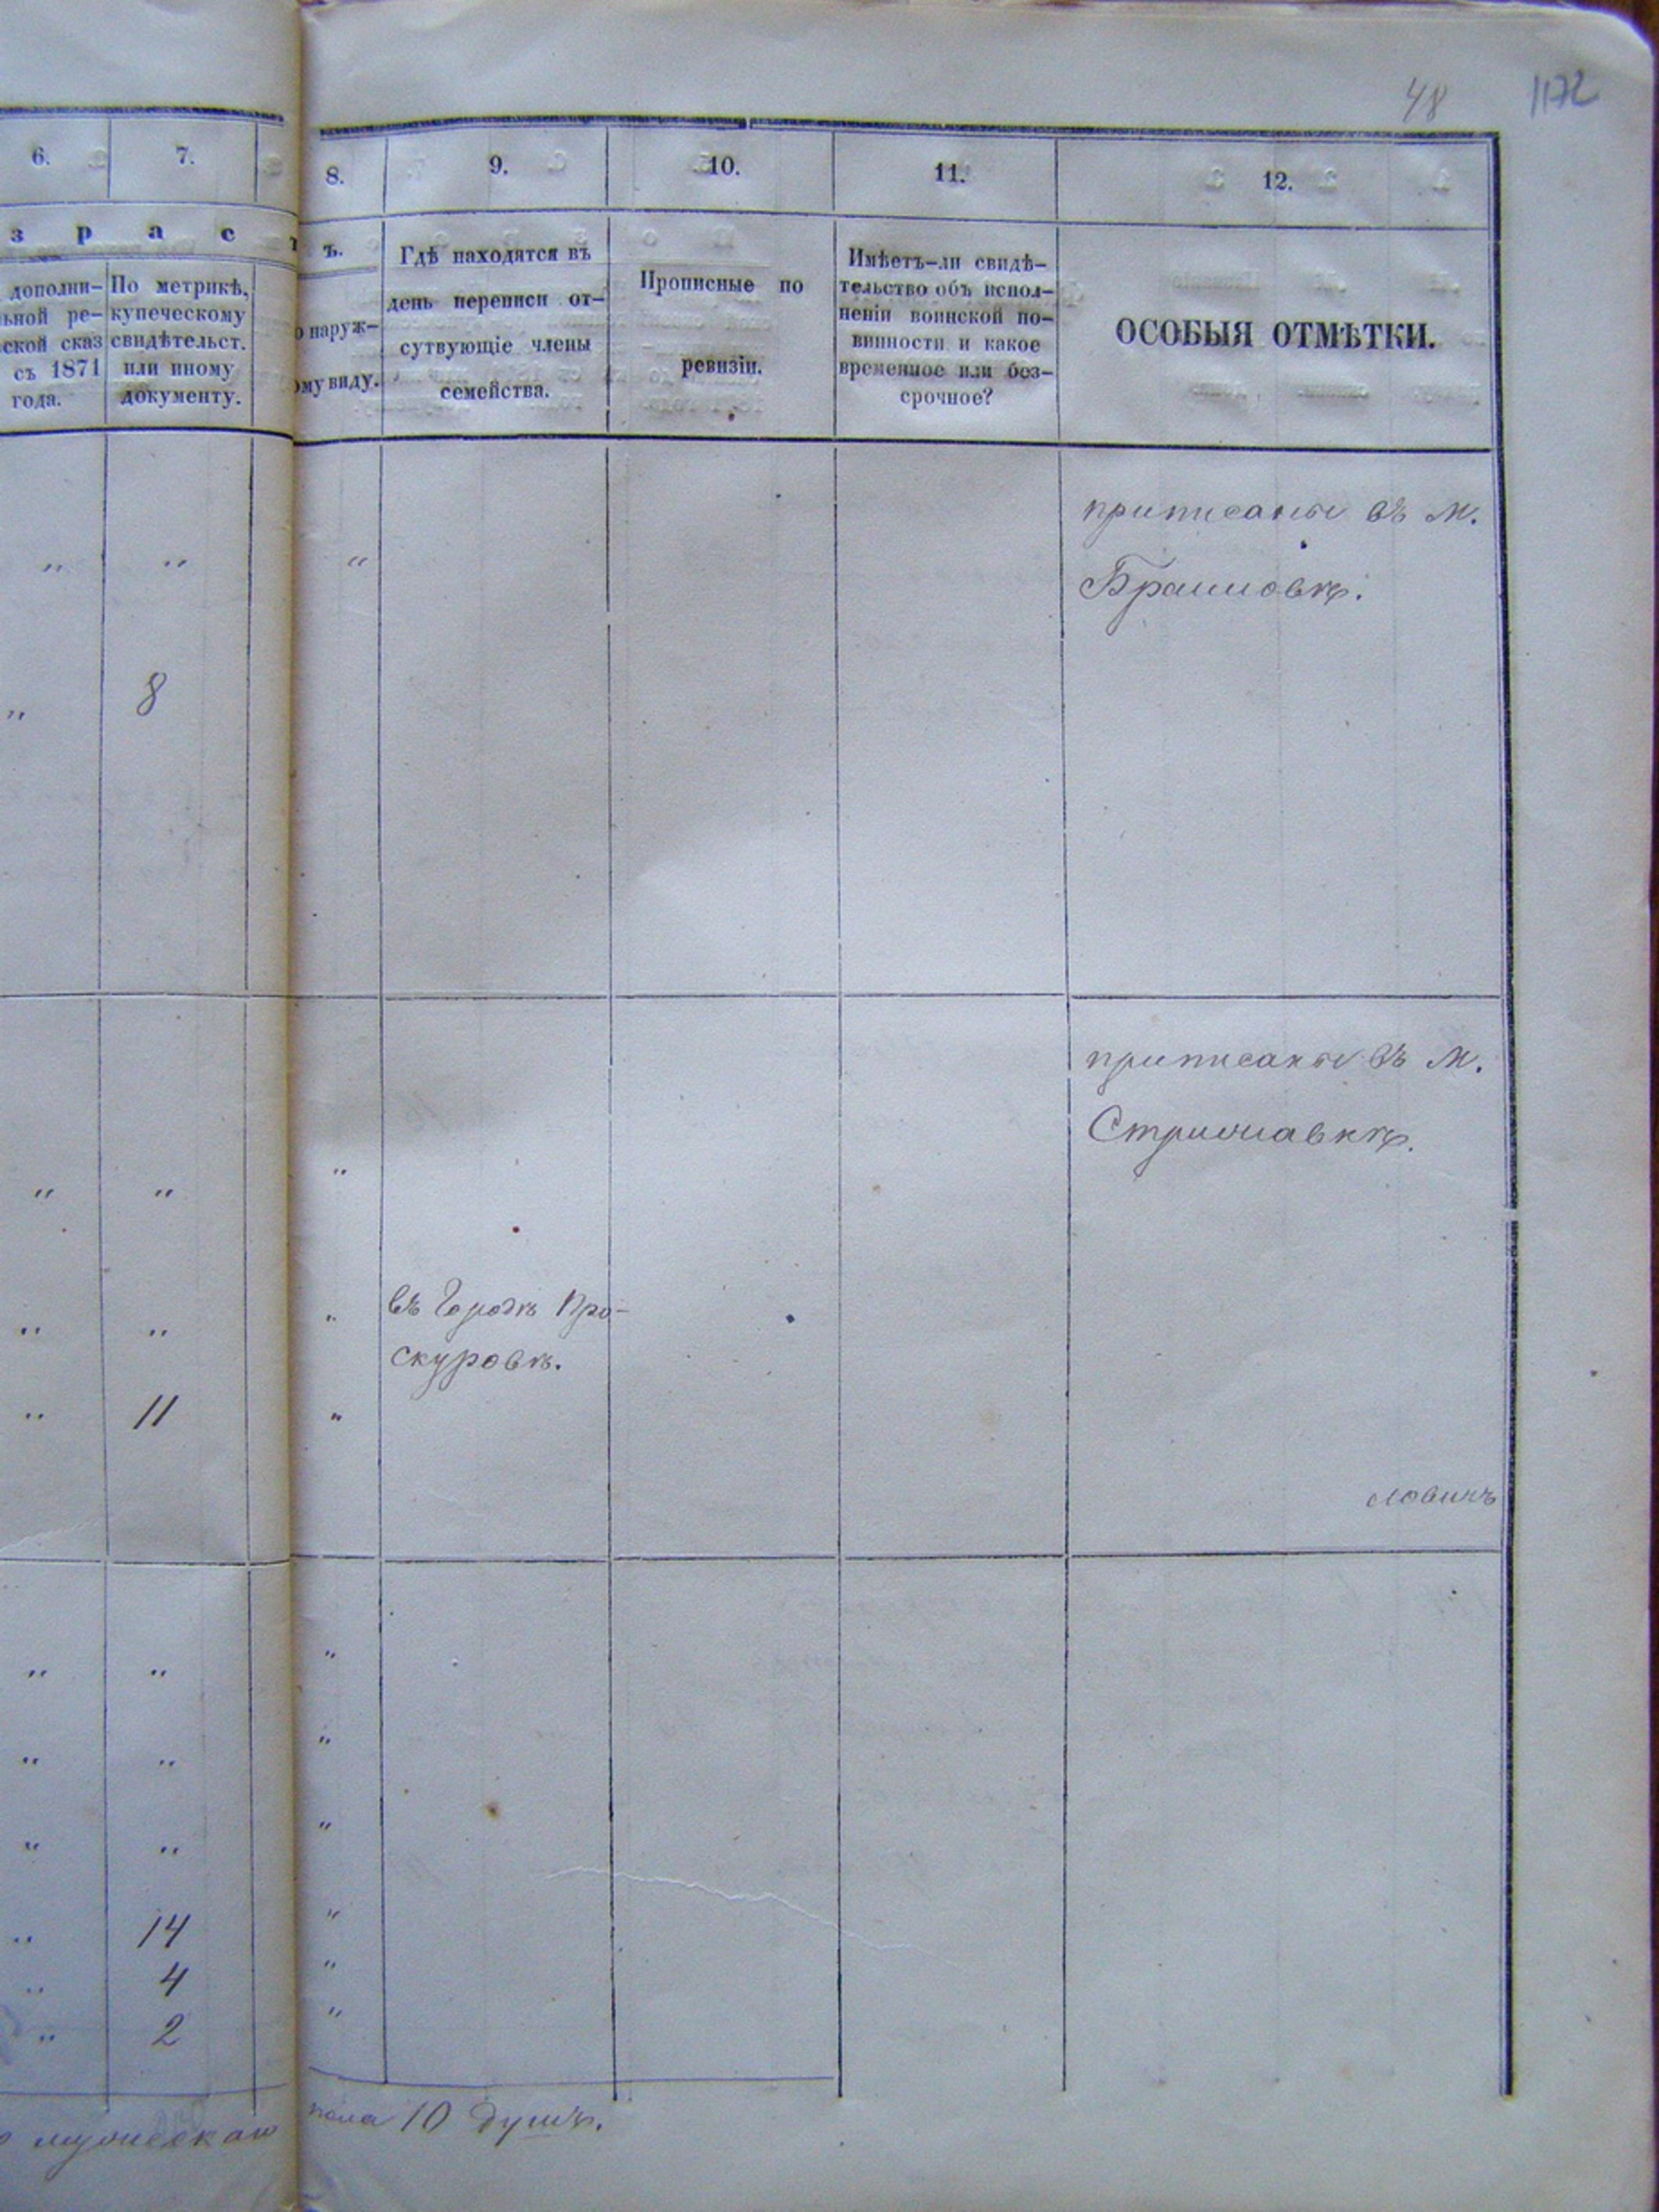 48 1172
6. 7. 8. 9. 10. 11. 12.
з р а с т ъ.
дополни-
ьной ре-
ской сказ
съ 1871
года.
По метрикѣ,
купеческому
свидѣтельст.
или иному
документу.
о наруж-
ому виду.
Гдѣ находятся въ
день переписи от-
сутвующіе члены
семейства.
Прописные по
ревизіи.
Имѣетъ-ли свидѣ-
тельство объ испол-
неніи воинской по-
винности и какое
временное или без-
срочное?
ОСОБЫЯ ОТМѢТКИ.
приписаны въ м.
Браиловѣ.
„ „ „
„ 8
приписаны въ м.
Стрижавкѣ.
„ „ „
въ Городѣ Про-
скуровѣ.
„ „ „
„ 11 „
„ „ „
„ „ „
„ „ „
„ 14 „
„ 4 „
„ 2 „
мужескаго пола 10 душъ.